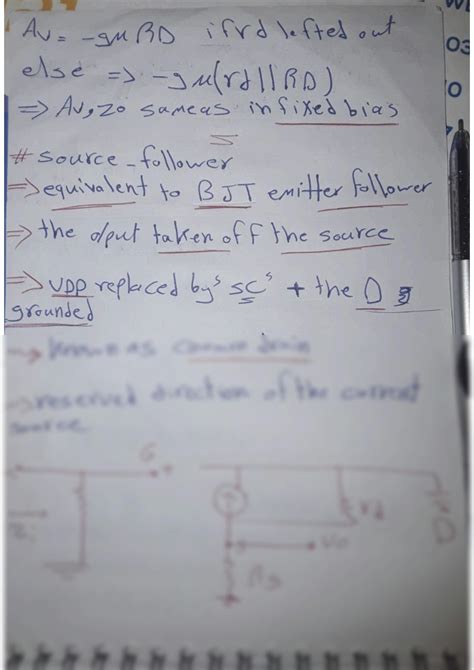 Av = -gm RD if rd lefted out
else => -gm(rd || RD)
=> Av, Zo same as in fixed bias
# source-follower
=> equivalent to BJT emitter follower
=> the o/put taken off the source
=> VDD replaced by's SC's + the D is
grounded
-> known as common drain
-> reserved direction of the current
source
G
+
Zi
rd
D
Vo
Rs
03